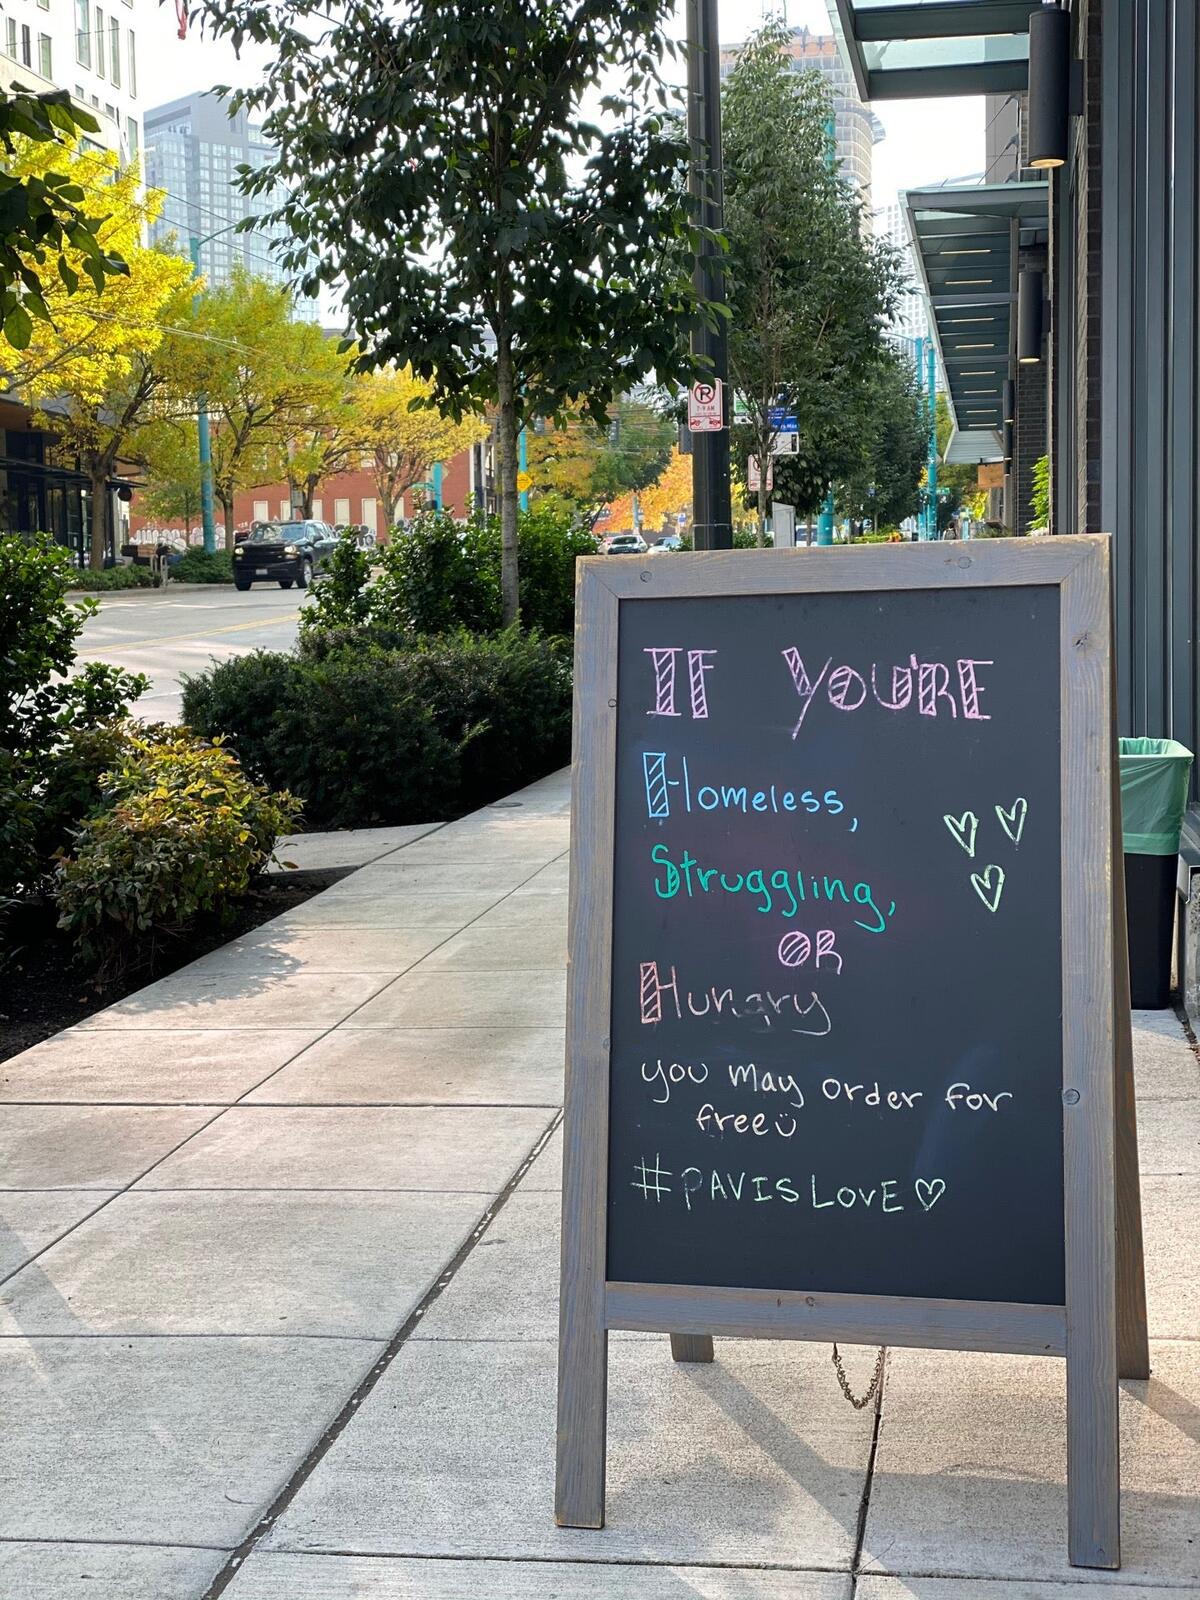 IF YOU'RE
Homeless,
Struggling,
OR
Hungry
you may order for
free
#PAVISLOVE
P
7-9 AM